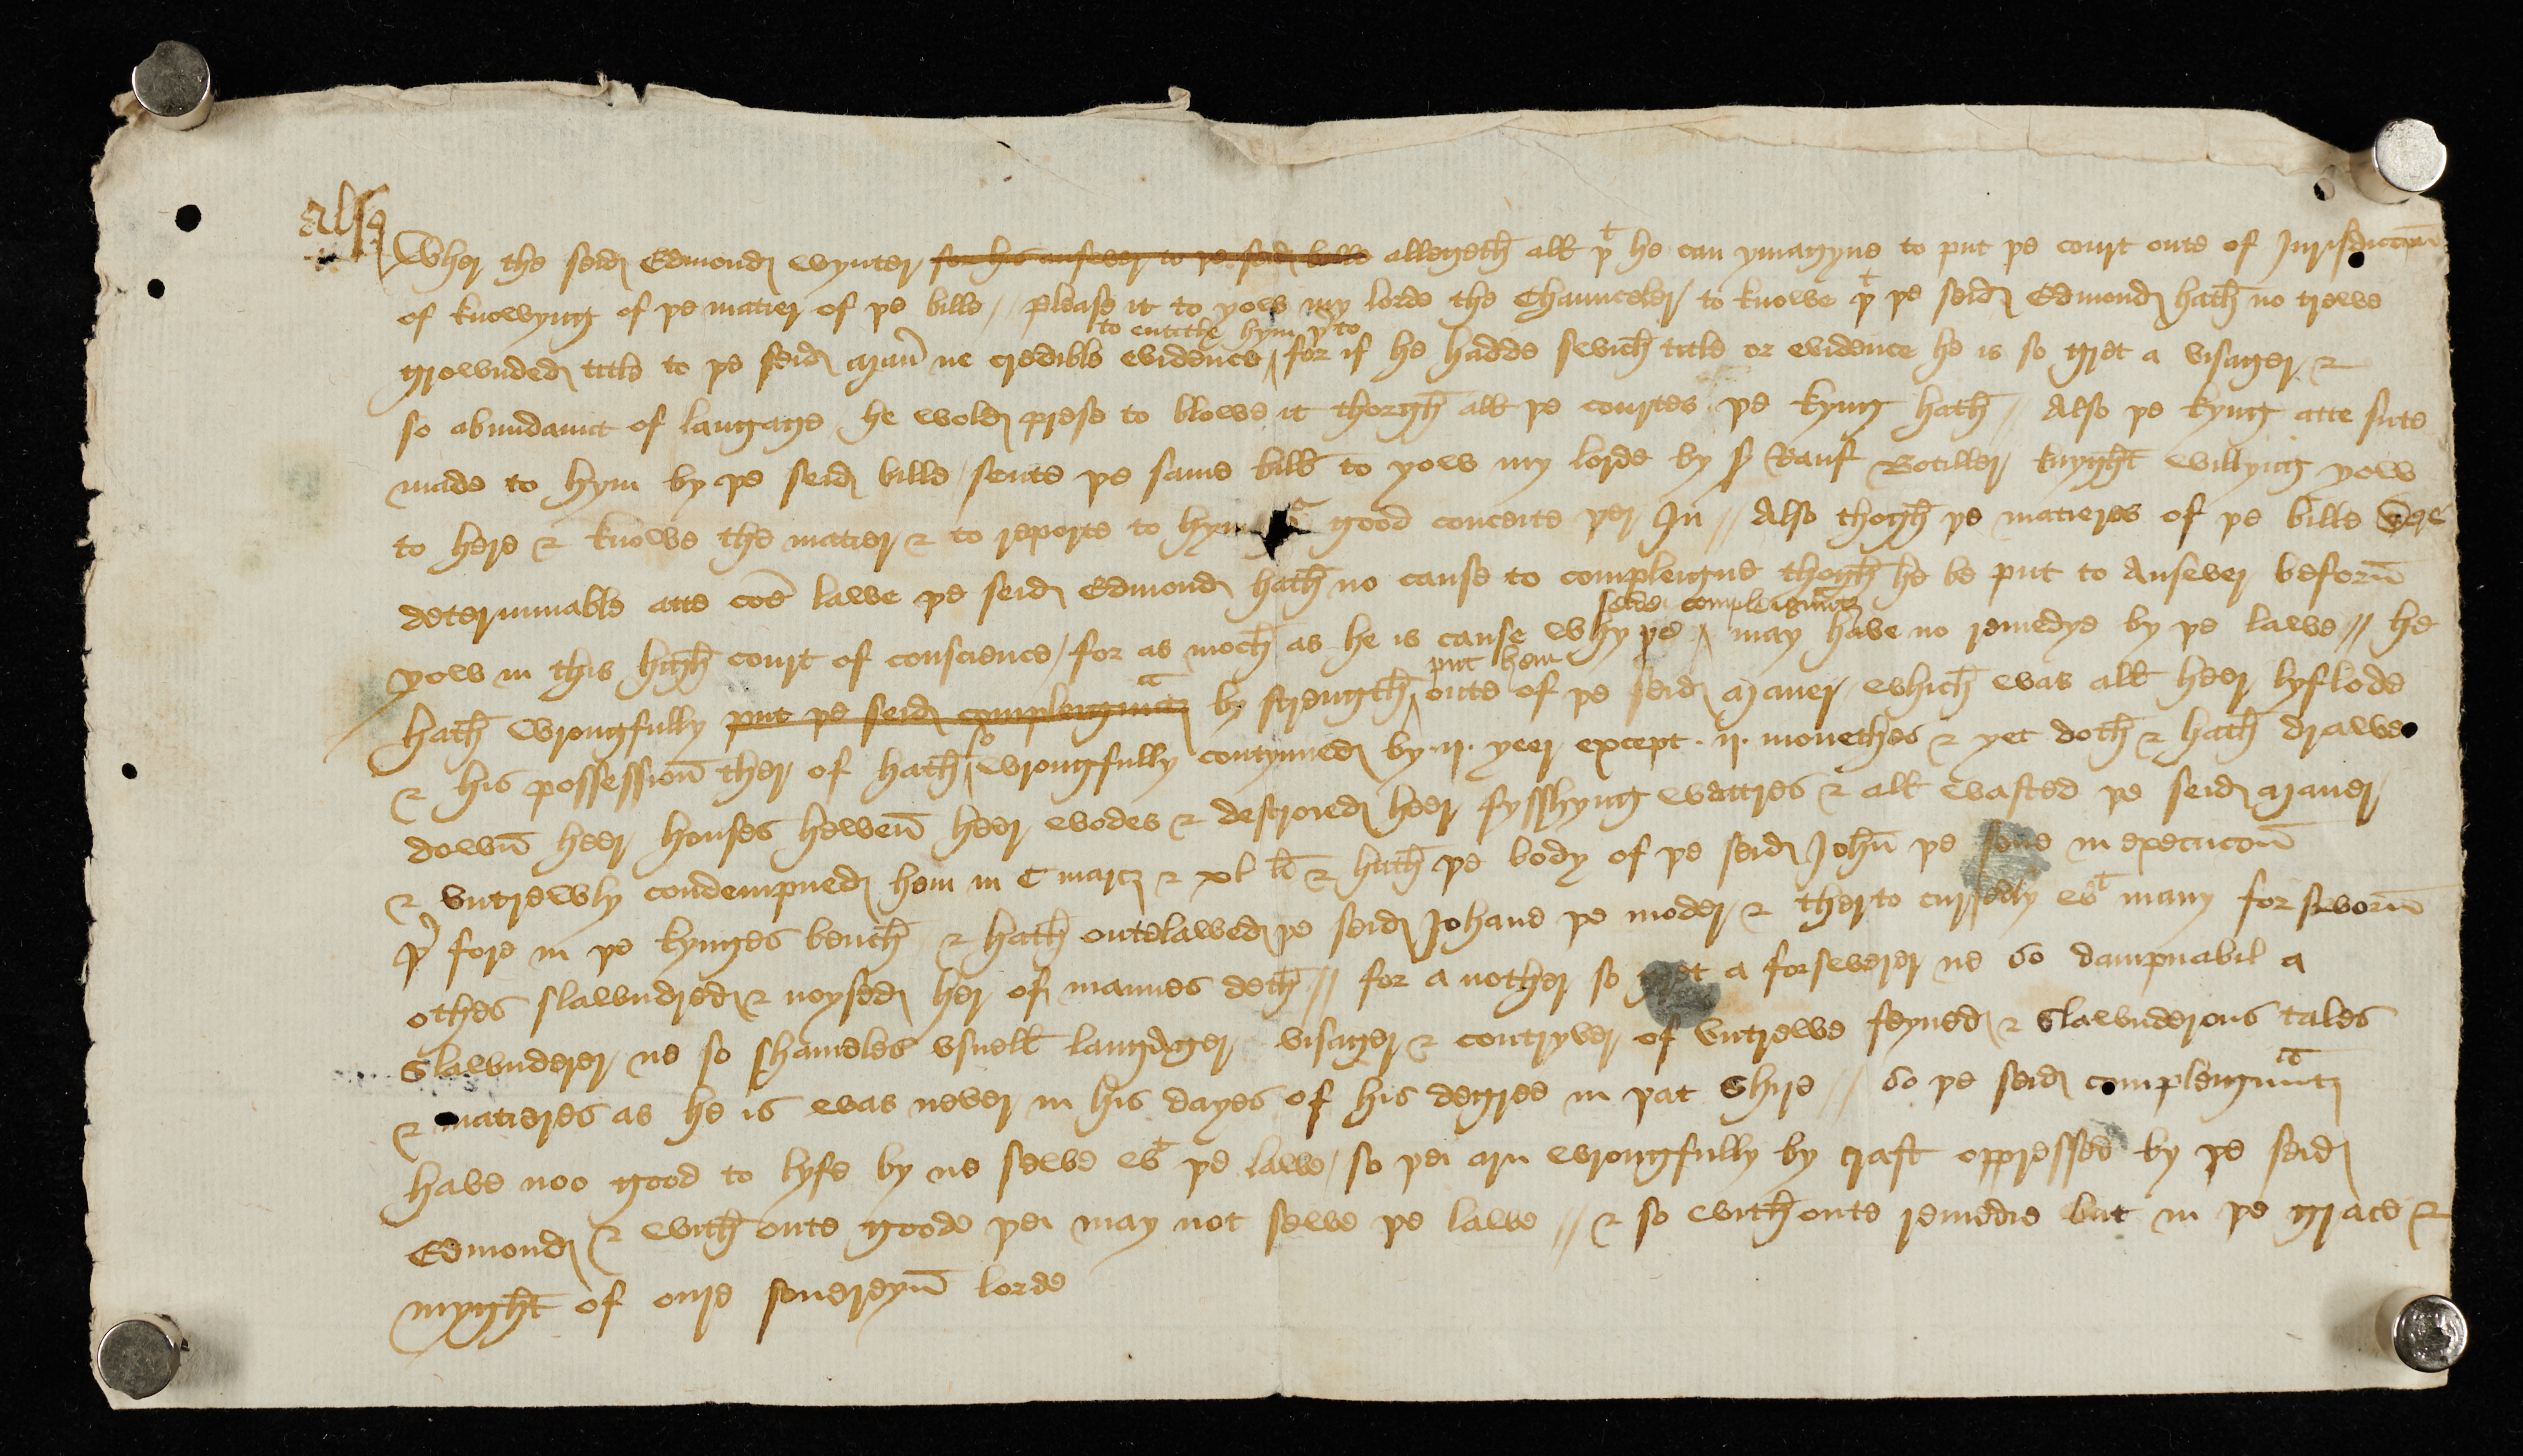 Also
Wher the seid Edmond Wynter for his answer to þe seid bille allegeth all þt he can ymagyne to put þe court oute of Jurisdiccōn
of knowyng of þe matier of þe bille // Please it to yow my lorde the Chaunceler to knowe þt þe seid Edmond hath no trewe
to entitle hym þrto
grownded title to þe seid Manr ne credible evidence / for if he hadde swich title or evidence he is so gret a visager &
so abundaunt of langage he wold prese to blowe it thorgh all þe courtes þe kyng hath // Also þe kyng atte sute
made to hym by þe seid bille / sente þe same bill to yow my lorde by Sr Rauf Botiller knyght willyng yow
to here & knowe the matier & to reporte to hym good conceite þer In // Also thogh þe matieres of þe bille were
determinable atte coē lawe þe seid Edmond hath no cause to compleigne thogh he be put to Answer beforn̄
seide compleignantz
yow in this high court of conscience / for as moch as he is cause why þe may have no remedye by þe lawe // he
put hem
hath wrongfully put þe seid compleignantz by strength oute of þe seid Maner which was all heer lyflode
so
& his possession̄ ther of hath wrongfully contynued by .ij. yeer except .ij. monethes & yet doth & hath drawe
down̄ heer houses hewen̄ heer wodes & destroied heer fysshyng wattres & all wasted þe seid Maner
& vntrewly condempned hem in C marcz & xl li & hath þe body of þe seid John̄ þe sone in execucōn
þr fore in þe kynges bench & hath outelawed þe seid Johane þe moder & therto cursedly wt many forsworn̄
othes slawndred & noysed her of mannes deth // for a nother so gret a forswerer ne so dampnabil a
slawnderer ne so shameles vsuell langager visager & contryver of vntrewe feyned & slawnderous tales
& matieres as he is was never in his dayes of his degree in þat shire // So þe seid compleignantz
have noo good to lyfe by ne sewe wt þe lawe / so þei arn wrongfully by craft oppressed by þe seid
Edmond & with oute goode þei may not sewe þe lawe // & so with oute remedie but in þe grace &
myght of oure souereyn̄ lorde